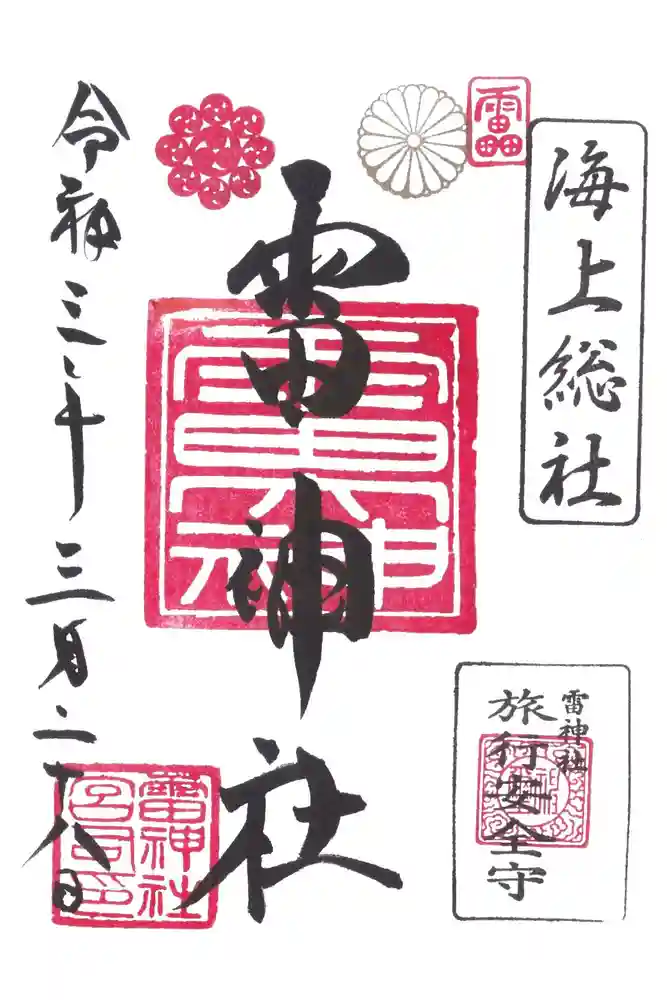 海上総社
雷神社
令和三年三月二十八日
雷
雷大神
雷神社
宮司印
雷神社
旅行安全守